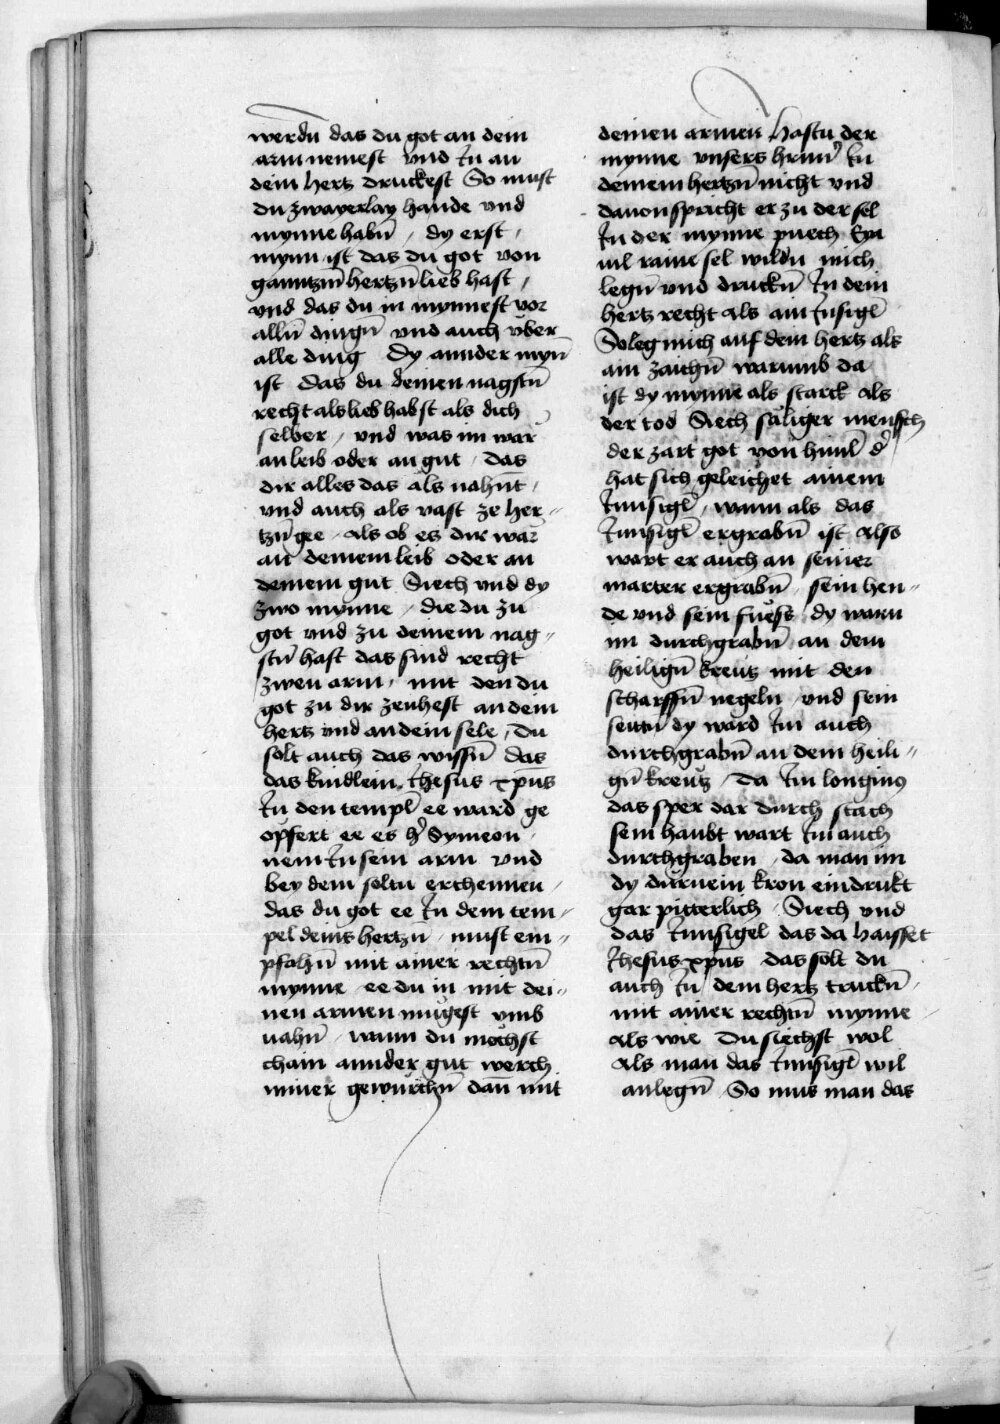 werdn̄ das du got an dein
arm nemest vnd In an
dein hertz druckest So must
du zwayerlay hande vnd
mynne habn̄ / dy erst /
mynn ist das du got von
ganntzm̄ hertzn̄ lieb hast /
vnd das du in mynnest vor
alln̄ dingn̄ vnd auch vber
alle ding Dy annder myn̄
ist das du deinen nagstn̄
recht als lieb habst als dich
selber / vnd was im war
an leib oder an gut / das
dir alles das als nahn̄t /
vnd auch als vast ze her //
tzn̄ gee / als ob es dir war
an deinem leib oder an
deinem gut Siech vnd dy
zwo mynne / die du zu
got vnd zu deinem nag //
stn̄ hast das sind recht
zwen arm / mit den du
got zu dir zeuhest an dein
hertz vnd an dein sele / Du
solt auch das wissn̄ das
das kindlein Ihesus xp̄us
In den templ̄ ee ward ge
opfert ee es h̓ Symeon /
nem In sein arm vnd
bey dem soltu erchennen /
das du got ee In dem tem //
pel deins hertzn / must em //
pfahn̄ mit ainer rechtn̄
mynne ee du in mit dei //
nen armen mugest vmb
uahn̄ / wann du mochst
chain annder gut werch
nimer gewurchn̄ dan̄ mit
deinen armen Hastu der
mynne vnsers hrnn̓ In
deinem hertzn̄ nicht vnd
dauon spricht er zu der sel
In der mynne puech Eya
vil raine sel wildu mich
legn̄ vnd druckn̄ In dein
hertz recht als ain Insigl̄
So leg mich auf dein hertz als
ain zaichn̄ warumb da
ist dy mynne als starck als
der tod Siech saliger mensch
der zart got von himl̄ d̓
hat sich geleichet ainem
Innsigl̄ / wann als das
Innsigl̄ ergrabn̄ ist Also
wart er auch an seiner
marter ergrabn̄ / sein hen //
de vnd sein fuess dy warn
im durchgrabn̄ an dem
heilign̄ kreutz mit den
scharffn̄ negeln / vnd sein
seittn̄ dy ward Im auch
durchgrabn̄ an dem heili //
gn̄ kreutz / Da Im longinus
das sper dar durch stach
sein haubt wart Im auch
durchgraben / da man im
dy durnein kron eindrukt
gar pitterlich / Siech vnd
das Innsigel das da haisset
Ihesus xp̄us das solt du
auch In dein hertz truckn̄ /
mit ainer rechtn̄ mynne /
Als wie Du siechst wol
Als man das Innsigl̄ wil
anlegn̄ So mus man das